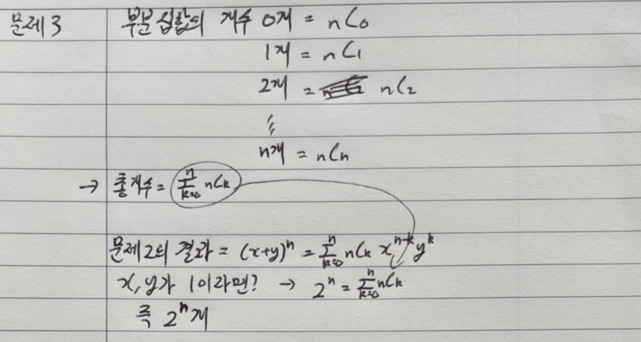 문제 3 부분집합의 개수 0개 = nC₀
1개 = nC₁
2개 = nC₂
⋮
n개 = nCn
→ 총개수 = $\sum_{k=0}^{n}$ nCk
문제 2의 결과 = (x+y)ⁿ = $\sum_{k=0}^{n}$ nCk xⁿ⁻ᵏyᵏ
x, y가 1이라면? → 2ⁿ = $\sum_{k=0}^{n}$ nCk
즉 2ⁿ개